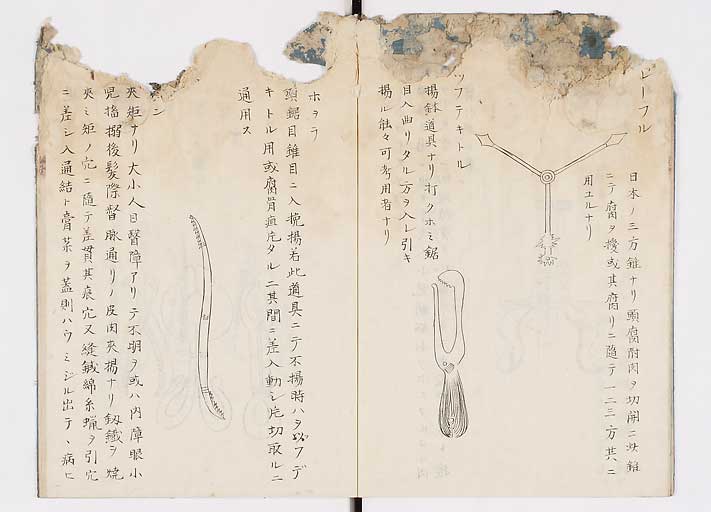 ピーフル
日本ノ三方錐ナリ頭腐耐肉ヲ切開ニ此錐
ニテ腐ヲ攪或其腐リニ随テ一二三方共ニ
用ユルナリ
ツフテキトル
揚鉢道具ナリ打クホミ鋸
目入曲リタル方ヲ入レ引キ
揚ル能々可考用者ナリ
ホヲラ
頭鋸目錐目ニ入挽揚若此道具ニテ不揚時ハヲヅフデ
キトル用或腐骨疵片タルニ其間ニ差入動シ片切取ルニ
通用ス
ン
夾矩ナリ大小人目醫障アリテ不明ヲ或ハ内障眼小
児搐搦後髪際督脉通リノ皮肉夾揚ナリ釼鐵ヲ焼
夾ミ矩ノ穴ニ随テ差貫其痕穴又縫鍼綿糸蝋ヲ引穴
ニ差シ入通結ト膏薬ヲ蓋則ハウミジル出テヽ病ヒ